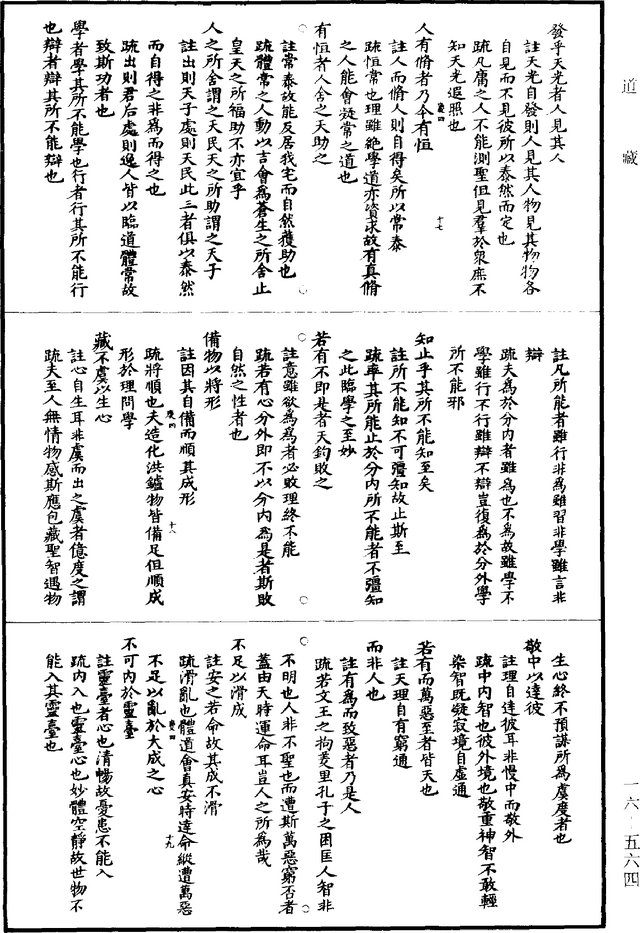 道藏
發乎天光者人見其人
註天光自發則人見其人物見其物物各
自見而不見彼所以泰然而定也
疏凡庸之人不能測聖但見羣於衆庶不
知天光遐照也
人有脩者乃今有恒
註人而脩人則自得矣所以常泰
疏恒常也理雖絶學道亦資求故有真脩
之人能會凝常之道也
有恒者人舍之天助之
註常泰故能反居我宅而自然獲助也
疏體常之人動以吉會為蒼生之所舍止
皇天之所福助不亦宜乎
人之所舍謂之天民天之所助謂之天子
註出則天子處則天民此三者俱以泰然
而自得之非為而得之也
疏出則君后處則逸人皆以臨道體常故
致斯功者也
學者學其所不能學也行者行其所不能行
也辯者辯其所不能辯也
慶四
十七
註凡所能者雖行非為雖習非學雖言非
辯
疏夫為於分内者雖為也不為故雖學不
學雖行不行雖辯不辯豈復為於分外學
所不能邪
知止乎其所不能知至矣
註所不能知不可彊知故止斯至
疏率其所能止於分内所不能者不彊知
之此臨學之至妙
若有不即是者天鈞敗之
註意雖欲為為者必敗理終不能
疏若有心分外即不以分内為是者斯敗
自然之性者也
備物以將形
註因其自備而順其成形
疏將順也夫造化洪鑪物皆備足但順成
形於理問學
藏不虞以生心
註心自生耳非虞而出之虞者億度之謂
疏夫至人無情物感斯應包藏聖智遇物
慶四
十八
生心終不預謀所為虞度者也
敬中以達彼
註理自達彼耳非慢中而敬外
疏中内智也彼外境也敬重神智不敢輕
染智既凝寂境自虛通
若有而萬惡至者皆天也
註天理自有窮通
而非人也
註有為而致惡者乃是人
疏若文王之拘羑里孔子之困匡人智非
不明也人非不聖也而遭斯萬惡窮否者
蓋由天時運命耳豈人之所為哉
不足以滑成
註安之若命故其成不滑
疏滑亂也體道會真安時達命縱遭萬惡
不足以亂於大成之心
不可内於靈臺
註靈臺者心也清暢故憂患不能入
疏内入也靈臺心也妙體空靜故世物不
能入其靈臺也
慶四
十九
一六-五六四